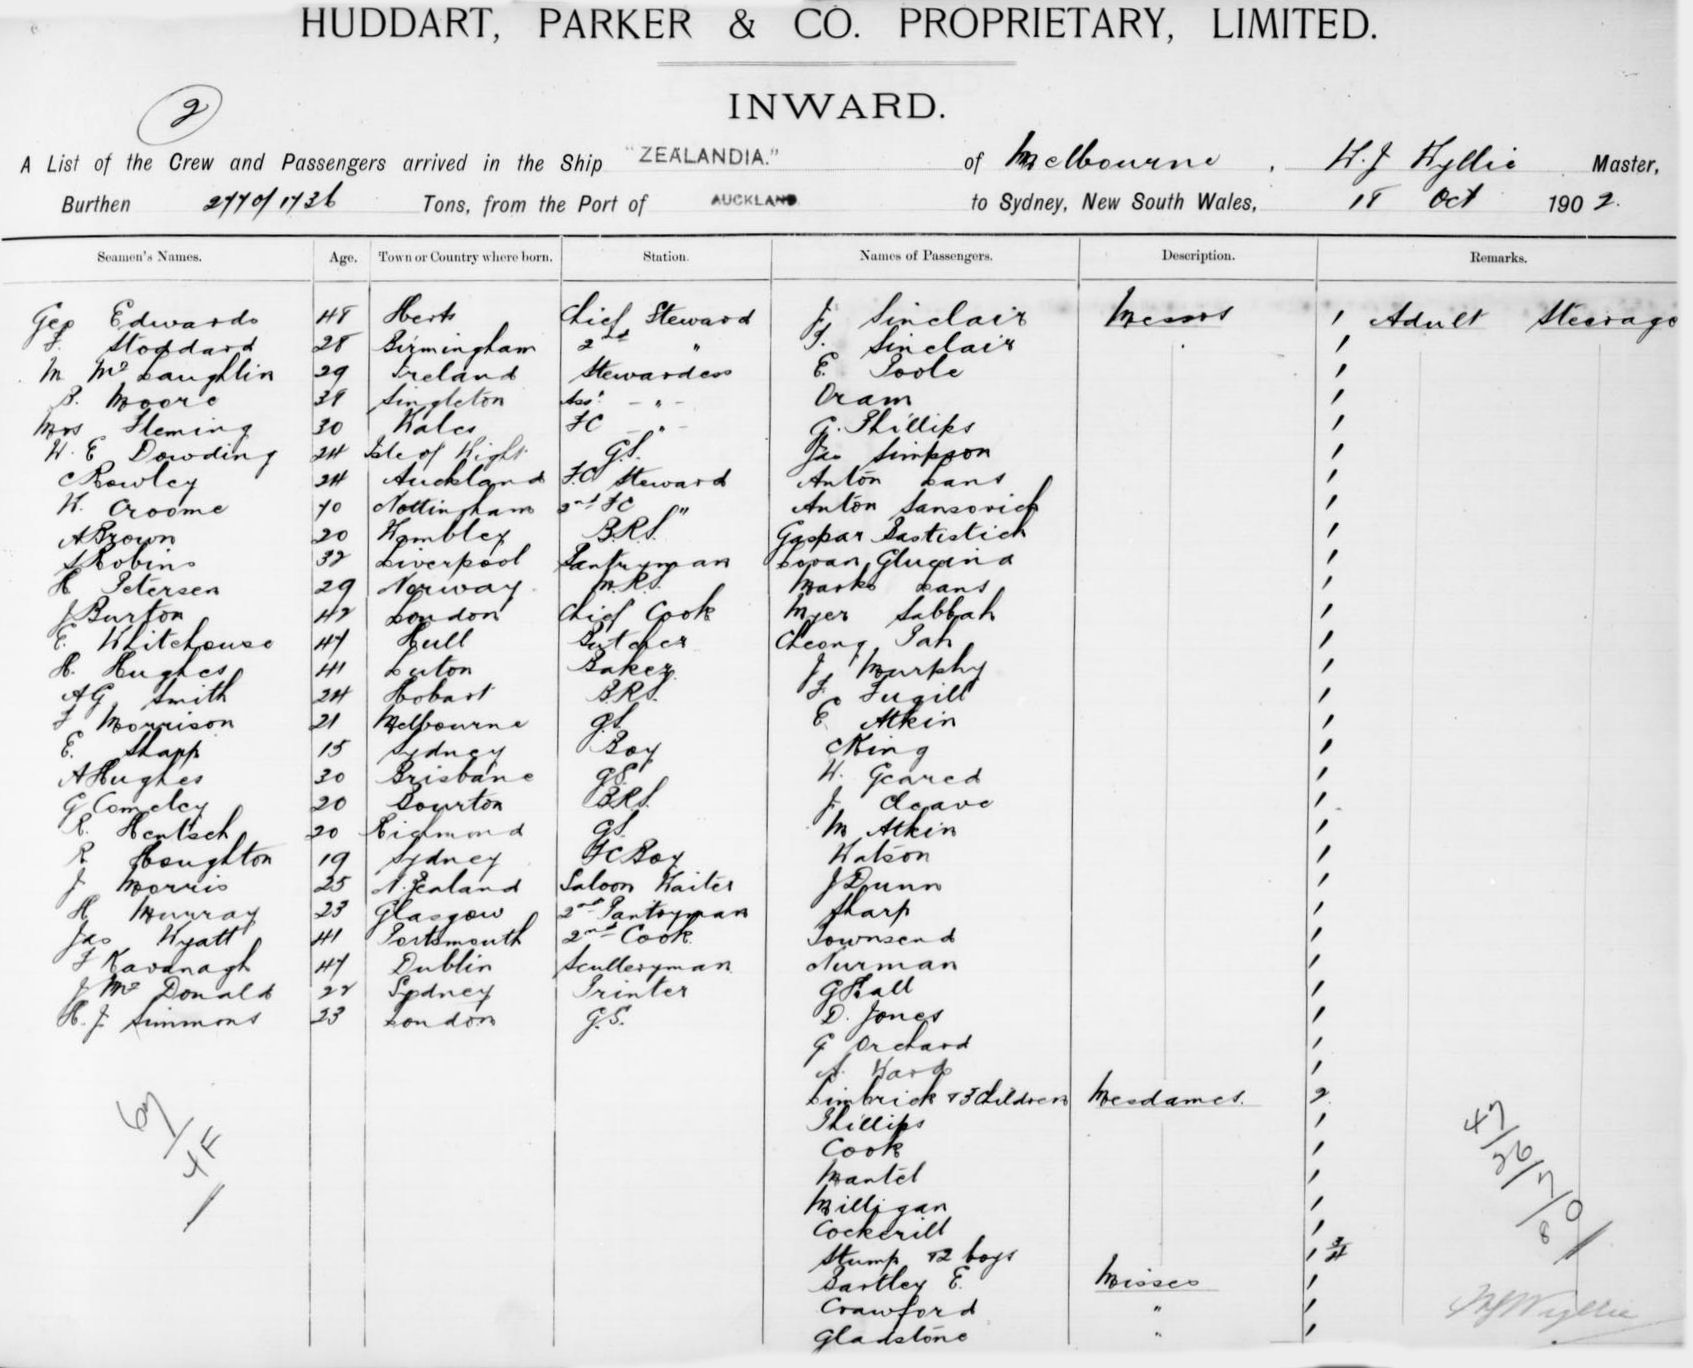 HUDDART, PARKER & CO. PROPRIETARY, LIMITED.
INWARD.
2
A List of the Crew and Passengers arrived in the Ship "ZEALANDIA." of Melbourne, W. J Wyllie Master,
Burthen 2770/1736 Tons, from the Port of AUCKLAND to Sydney, New South Wales, 18 Oct 1902.
Seamen's Names. Age. Town or Country where born. Station. Names of Passengers. Description. Remarks.
Geo Edwards 48 Herts Chief Steward J. Sinclair Messrs 1 Adult Steerage
F. Stoddard 28 Birmingham 2nd " F. Sinclair 1
M McLaughlin 29 Ireland Stewardess E. Poole 1
B. Moore 39 Singleton Ass. - " - Oram 1
Mrs Fleming 30 Wales FC - " - G. Phillips 1
W. E Dowding 24 Isle of Wight G.S. Jas Simpson 1
C Rowley 24 Auckland F.C Steward Anton Lans 1
W. Croome 40 Nottingham 2nd FC " Anton Sansovich 1
A Brown 20 Wombley B.R.S. Gaspar Bastistich 1
S Robins 32 Liverpool Pantryman Lovan Glucina 1
H Petersen 29 Norway. M.R.S. Marko Lans 1
J Burton 42 London Chief Cook Myer Sabbah 1
E. Whitehouse 47 Hull Butcher Cheong Pah 1
H. Hughes 41 Luton Baker J. Murphy 1
A G Smith 24 Hobart B.R.S. F Fugill 1
F Morrison 21 Melbourne G.S. E Atkin 1
E. Shapp 15 Sydney Boy C King 1
A Hughes 30 Brisbane G.S. W. Geared 1
G Comeley 20 Bourton B.R.S. J. Cleave 1
R. Hentsch 20 Richmond G.S. M Atkin 1
R Houghton 19 Sydney FC Boy Watson 1
J. Morris 25 N. Zealand Saloon Waiter J Dunn 1
H Murray 23 Glasgow 2nd Pantryman Sharp 1
Jas Wyatt 41 Portsmouth 2nd Cook Townsend 1
F Kavanagh 47 Dublin Sculleryman Nurman 1
J McDonald 22 Sydney Printer G Hall 1
H. J. Simmons 23 London G.S. D. Jones 1
G Orchard 1
A. Ward 1
Limbrick & 3 Children Mesdames. 2
Phillips 1
Cook 1
Mantel 1
Milligan 1
Cockerill 1
Stump & 2 boys 1 3/4
Bartley E. Misses 1
Crawford " 1
Gladstone " 1
67/4F/
47/26/7/0/80/
W J Wyllie